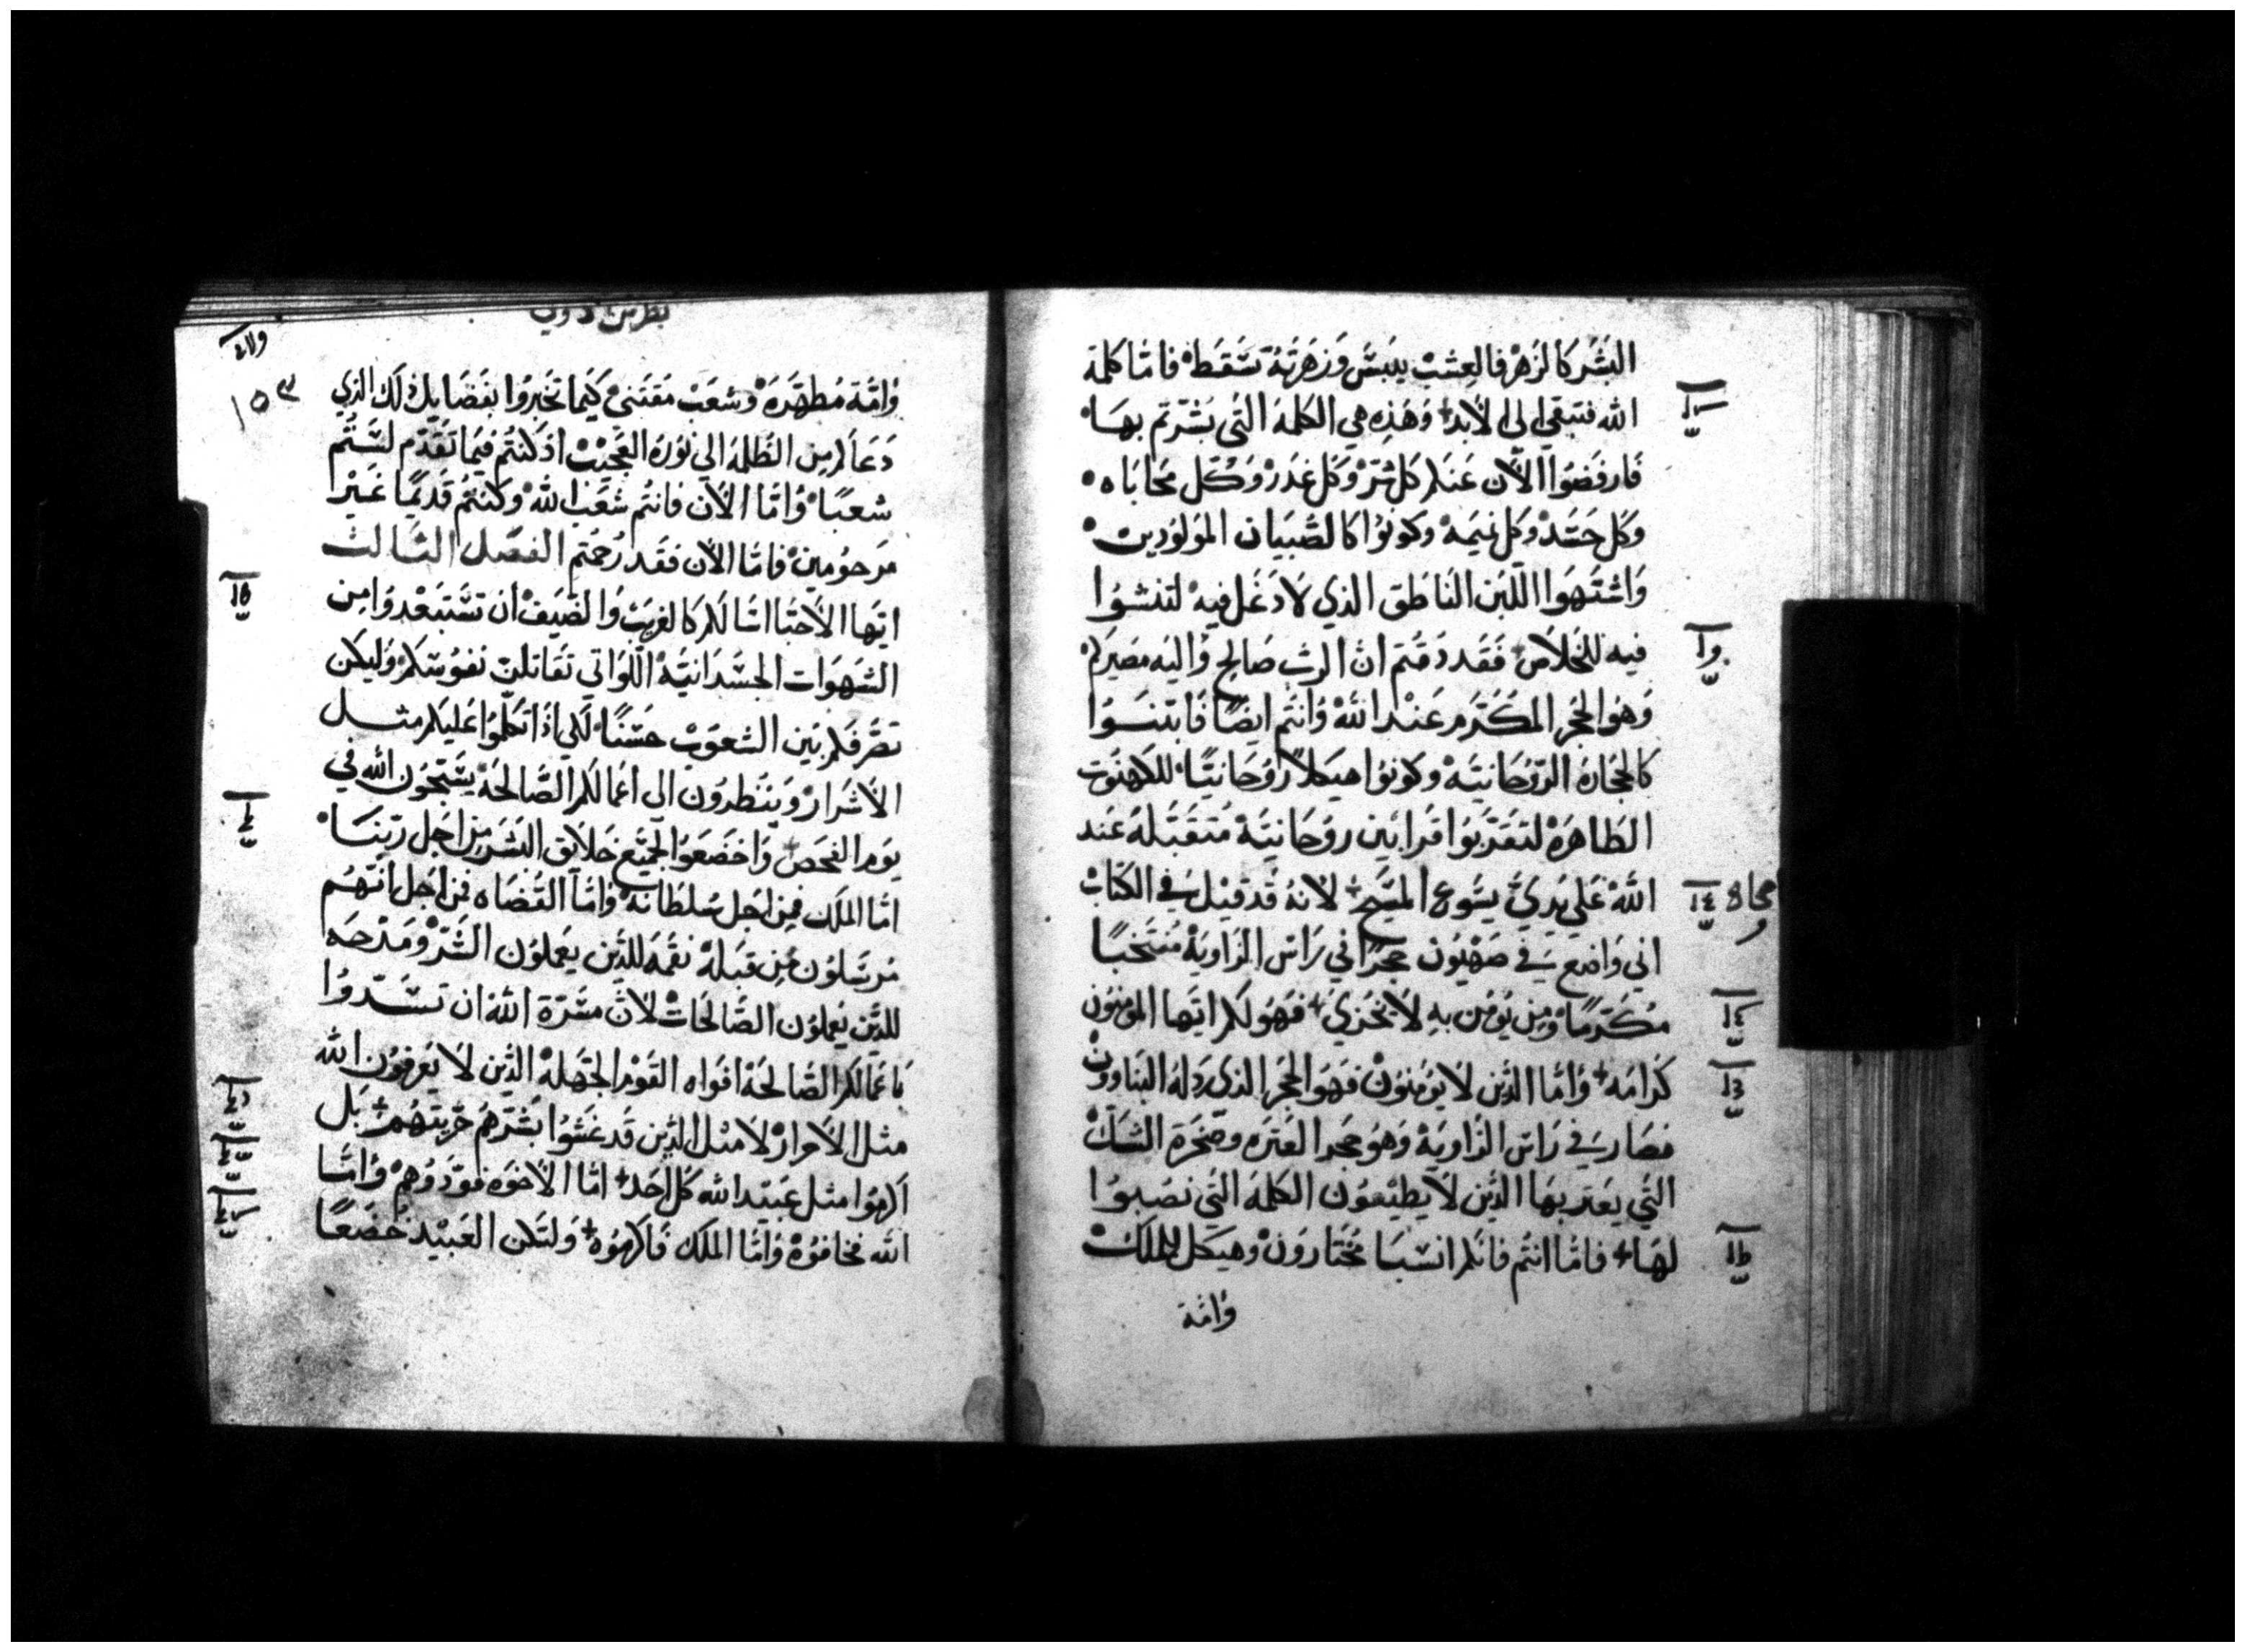 البَشَر كالزَهْر فالعِشبْ ييبَسْ وَزهَرَتهُ تسْقَط فامّا كلمة
الله فتبقي الي الأبد وَهَذِه هي الكلمة التي بشرتم بهَا
فارفضوا الآن عنكم كل شرّ وَكل غدَرْ وَكل محَابَاه
وَكل حَسَدْ وَكل نميَمه وَكونوُا كالصْبيَان الموَلوُدين
وَاشتهَوا اللبن الناطق الذي لاَدَغَل فيه لتنشوُا
فيه للخَلاَص فقَد دقتم ان الرب صَالح وَاليَه مصَيركم
وَهوَ الحجر المكَرم عَند الله وَانتم ايضًا فابتنَوُا
كالحجَارة الروُحَانيَه وَكونوُا هيكلاً روُحَانيًا للكهنوت
الطاهرَة لتقَربوَا قرابَين روُحَانيَة متقَبَلة عَند
الله عَلي يدَيْ يسَوع المسَيح لانهُ قد قيْل في الكتَابْ
اني وَاضع في صَهْيوُن حجرًا في رَاس الزَاويَة مُنتخَبًا
مُكَرمًا وَمن يوُمن بهِ لاَ يخَزيْ فهَوُ لكم ايهَا المومنوُن
كرامَه وَامّا الذَين لاَ يوُمنوُن فهوَ الحجر الذي ردَله البنَاووُن
فصَار في رَاس الزاويَة وَهوُ حجر العَترة وَصَخرَة الشكْ
التَي يعَتر بهَا الذَين لاَ يطيْعوُن الكلمة التَي نصَبوُا
لهَا فامّا انتم فانكم انسَبَا مُختارَوُن وهيكل للملَكْ
وَامّة
وَامّة مُطهَرَة وَشعَبْ مقَتني كيَما تخَبروُا بفضَايل ذلَك الذي
دَعَاكم من الظلمَة الي نوُره العَجَيب اذ كنتُم فيَما تقَدّم لسَتُم
شعَبًا وَامّا الاَن فانتُم شعَب الله وَكنتُم قديَمًا غَيْر
مَرحوُمين فامّا الاَن فقَد رُحمتُم الفصَل الثالث
ايهَا الأحبَا اسَالكم كالغريَب وَالضَيفْ ان تسَتبَعْدوُا من
الشهَوَات الجسَدانيَة اللوَاتي تقَاتلن نفوُسَكم وَليكَن
تصَرفكم بيَن الشعوُب حَسَنًا لكي اذَا تكلموُا عَليكم مثل
الاشرَار وَينَظروُن الي اعَمالكم الصَالحَة يسَبحَوُن الله في
يوَم الفحَص وَاخضَعوُا لجميَع خلايَق البشَر من اجَل ربنَا
امّا الملَك فمن اجَل سُلطانه وَامَا القُضَاه فمن اجَل انهُم
مُرسَلوُن من قبَله نقَمة للذَين يعَملوُن الشَرْ وَمَدْحَه
للذَين يعَملوُن الصَالحَات لان مسَرة الله ان تسَدّوُا
باعَمالكم الصَالحَة افوَاه القوَم الجهَلة الذَين لاَ يعَرفوُن الله
مثل الاحرَار لاَ مثل الذين قد غشَوُا بشَرهمُ حريتهُم بل
اكرموُا مثل عَبيَد الله كُل احَد امّا الاخوَه فوَدّوُهم وَامّا
الله فخافوُه وَامّا الملك فاكرهوُه وَلتكن العَبيْد خُضَعًا
١٥٣